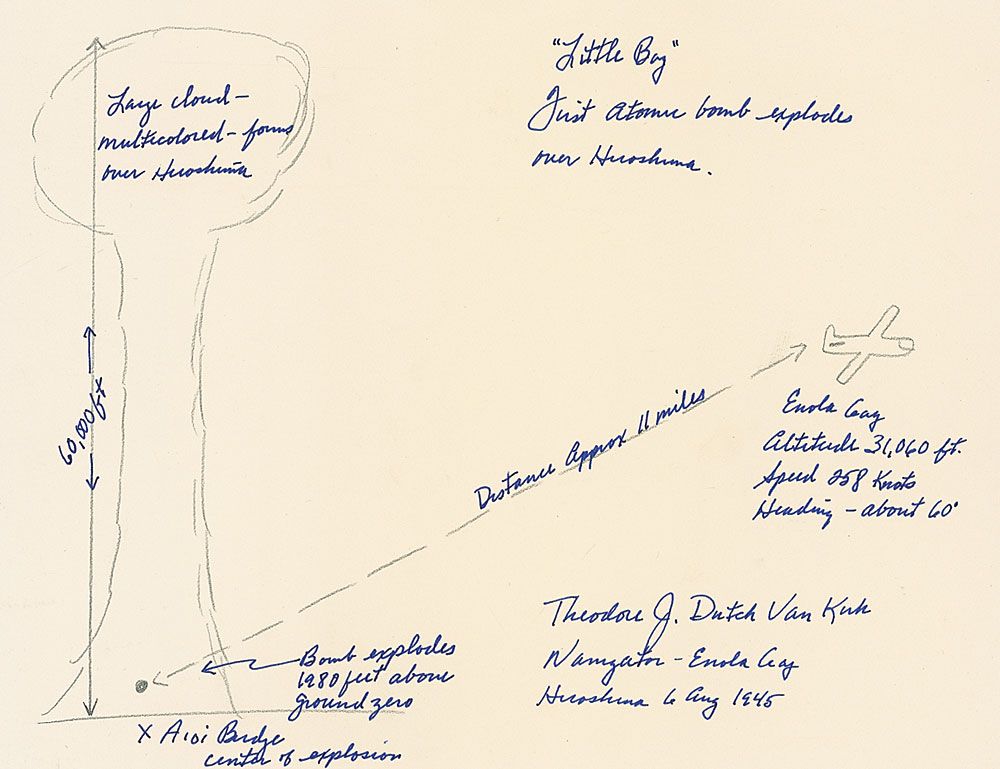 "Little Boy"
First Atomic bomb explodes
over Hiroshima.
Large cloud –
multicolored – forms
over Hiroshima
60,000 ft
Distance Approx 11 miles
Enola Gay
Altitude 31,060 ft.
Speed 258 Knots
Heading – about 60°
Bomb explodes
1980 feet above
ground zero
X Aioi Bridge
center of explosion
Theodore J. Dutch Van Kirk
Navigator – Enola Gay
Hiroshima 6 Aug 1945